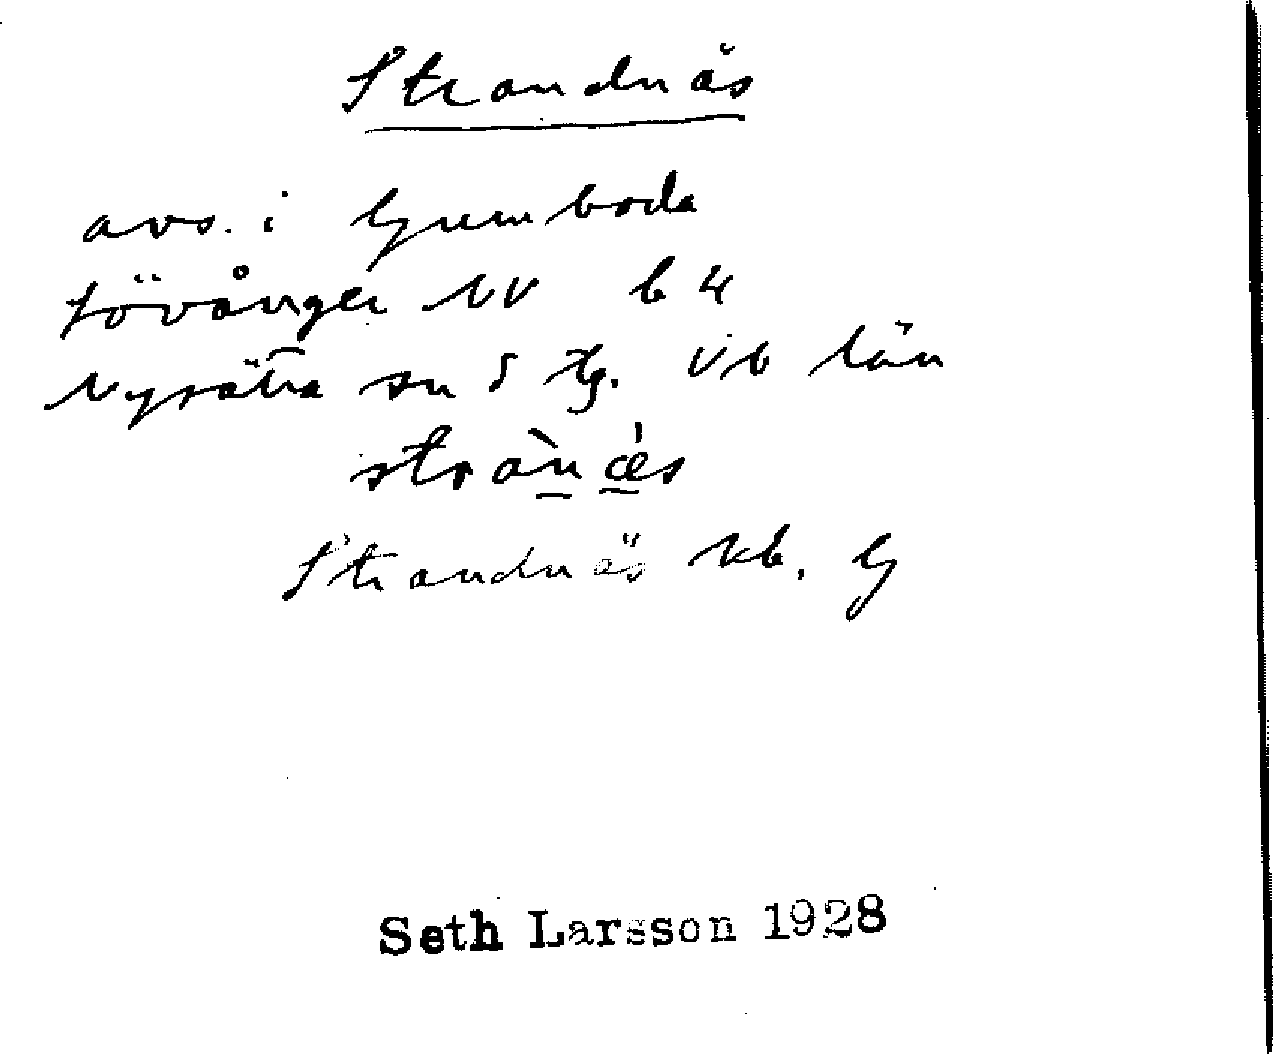 Strandnäs
avs. i Gumboda
Lövånger NV b 4
Nysätra sn S tg. Vb län
stràn ǽs
Strandnäs kb. G
Seth Larsson 1928